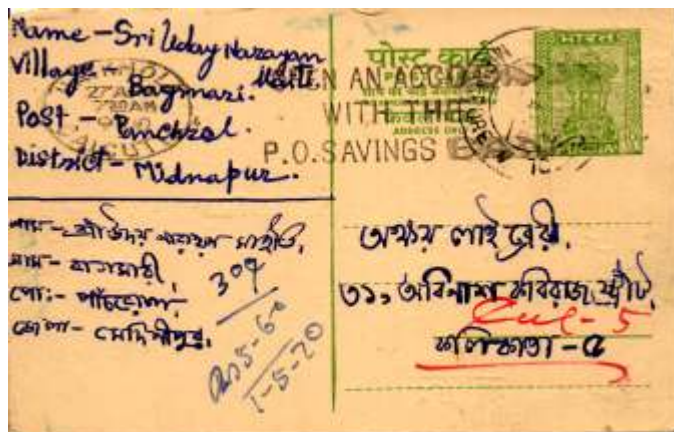 Name - Sri Uday Narayan
Maiti
Village - Bagmari.
Post - Panchrol.
District - Midnapur.
নাম - শ্রী উদয় নারায়ণ মাইতি,
গ্রাম - বাগমারী,
পোঃ - পাঁচরোল,
জেলা - মেদিনীপুর,
309
Rs 5-60
1-5-70
पोस्ट कार्ड
ADDRESS ONLY
भारत
AN ACCOUNT
WITH THE
P.O. SAVINGS
অক্ষয় লাইব্রেরী,
৩১, অবিনাশ কবিরাজ স্ট্রীট,
Cul - 5
কলিকাতা - ৫